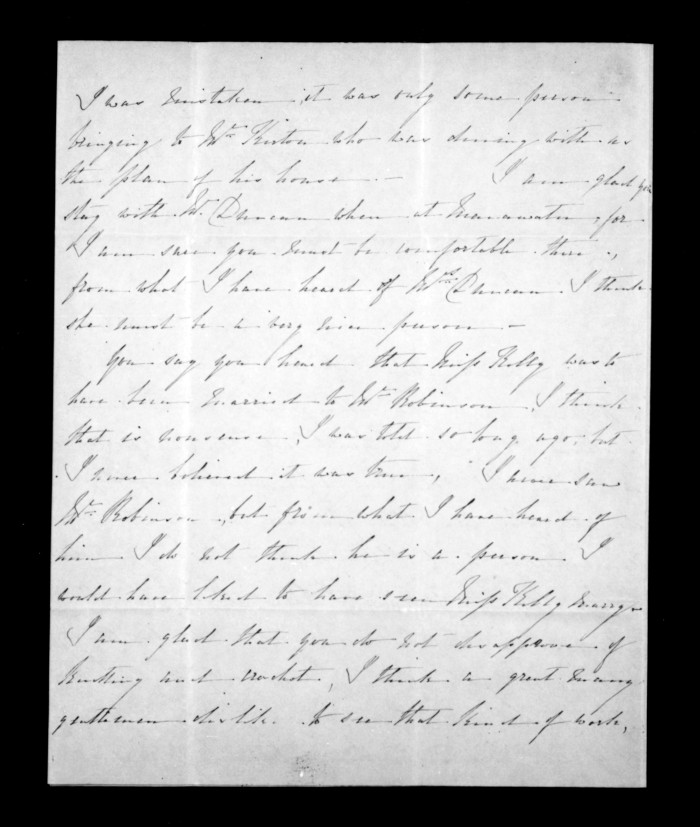 I was mistaken, it was only some person
bringing to Mr. Kirton who was dining with us
the plan of his house. — I am glad you
stay with Mr. Duncan when at Manawatu, for
I am sure you must be comfortable there.,
from what I have heard of Mrs. Duncan I think
she must be a very nice person —
You say you heard that Miss Kelly was to
have been married to Mr. Robinson I think
that is nonsense, I was told so long ago, but
I never believed it was true, I never saw
Mr. Robinson, but from what I have heard of
him I do not think he is a person I
would have liked to have seen Miss Kelly marry.
I am glad that you do not disapprove of
knitting and crochet, I think a great many
gentlemen dislike to see that kind of work,